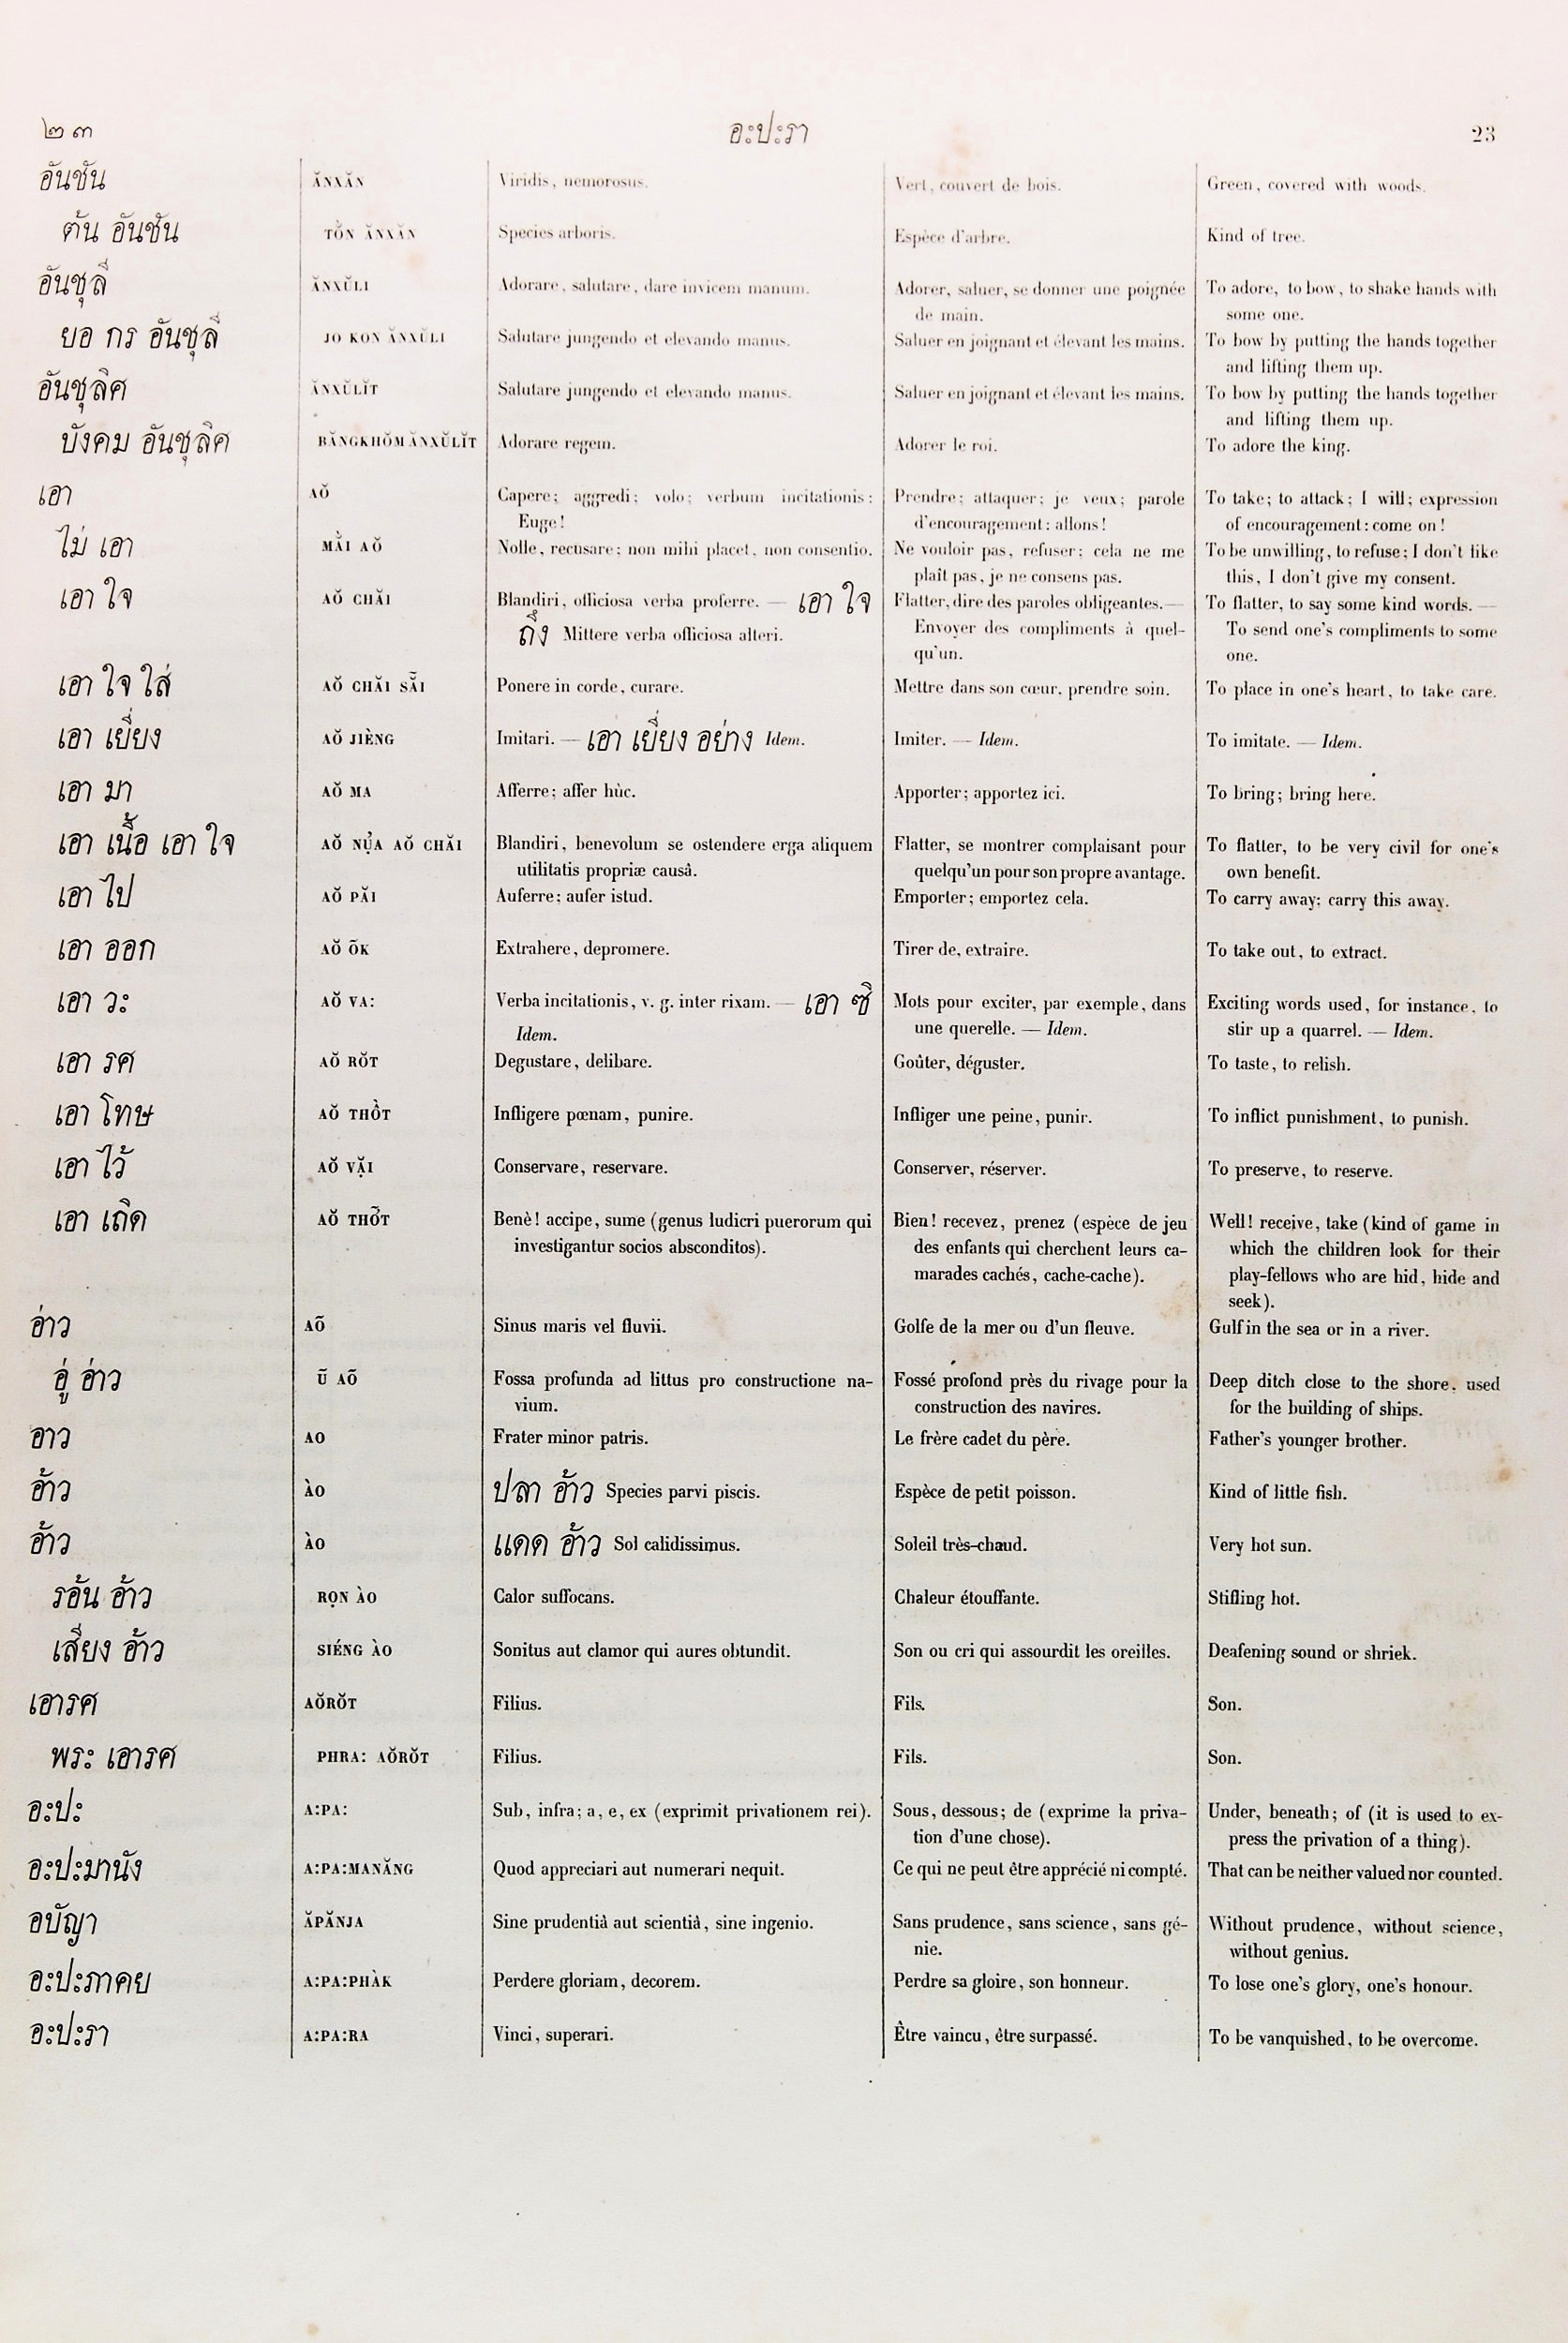 ๒๓ อะปะรา 23
อันชัน ĂNXĂN Viridis, nemorosus. Vert, couvert de bois. Green, covered with woods.
ต้น อันชัน TỒN ĂNXĂN Species arboris. Espèce d'arbre. Kind of tree.
อันชุลี ĂNXŬLI Adorare, salutare, dare invicem manum. Adorer, saluer, se donner une poignée To adore, to bow, to shake hands with
de main. some one.
ยอ กร อันชุลี JO KON ĂNXŬLI Salutare jungendo et elevando manus. Saluer en joignant et élevant les mains. To bow by putting the hands together
and lifting them up.
อันชุลิศ ĂNXŬLĬT Salutare jungendo et elevando manus. Saluer en joignant et élevant les mains. To bow by putting the hands together
and lifting them up.
บังคม อันชุลิศ BĂNGKHŎM ĂNXŬLĬT Adorare regem. Adorer le roi. To adore the king.
เอา AŎ Capere; aggredi; volo; verbum incitationis: Prendre; attaquer; je veux; parole To take; to attack; I will; expression
Euge! d'encouragement: allons! of encouragement: come on!
ไม่ เอา MẰI AŎ Nolle, recusare; non mihi placet, non consentio. Ne vouloir pas, refuser; cela ne me To be unwilling, to refuse; I don't like
plaît pas, je ne consens pas. this, I don't give my consent.
เอา ใจ AŎ CHĂI Blandiri, officiosa verba proferre. — เอา ใจ Flatter, dire des paroles obligeantes. — To flatter, to say some kind words. —
ถึง Mittere verba officiosa alteri. Envoyer des compliments à quel- To send one's compliments to some
qu'un. one.
เอา ใจ ใส่ AŎ CHĂI SẴI Ponere in corde, curare. Mettre dans son cœur, prendre soin. To place in one's heart, to take care.
เอา เยี่ยง AŎ JIÈNG Imitari. — เอา เยี่ยง อย่าง Idem. Imiter. — Idem. To imitate. — Idem.
เอา มา AŎ MA Afferre; affer hùc. Apporter; apportez ici. To bring; bring here.
เอา เนื้อ เอา ใจ AŎ NỤ̉A AŎ CHĂI Blandiri, benevolum se ostendere erga aliquem Flatter, se montrer complaisant pour To flatter, to be very civil for one's
utilitatis propriæ causâ. quelqu'un pour son propre avantage. own benefit.
เอา ไป AŎ PĂI Auferre; aufer istud. Emporter; emportez cela. To carry away; carry this away.
เอา ออก AŎ ÕK Extrahere, depromere. Tirer de, extraire. To take out, to extract.
เอา วะ AŎ VA: Verba incitationis, v. g. inter rixam. — เอา ซิ Mots pour exciter, par exemple, dans Exciting words used, for instance, to
Idem. une querelle. — Idem. stir up a quarrel. — Idem.
เอา รศ AŎ RŎT Degustare, delibare. Goûter, déguster. To taste, to relish.
เอา โทษ AŎ THỒT Infligere pœnam, punire. Infliger une peine, punir. To inflict punishment, to punish.
เอา ไว้ AŎ VẶI Conservare, reservare. Conserver, réserver. To preserve, to reserve.
เอา เถิด AŎ THỠT Benè! accipe, sume (genus ludicri puerorum qui Bien! recevez, prenez (espèce de jeu Well! receive, take (kind of game in
investigantur socios absconditos). des enfants qui cherchent leurs ca- which the children look for their
marades cachés, cache-cache). play-fellows who are hid, hide and
seek).
อ่าว AÕ Sinus maris vel fluvii. Golfe de la mer ou d'un fleuve. Gulf in the sea or in a river.
อู่ อ่าว Ũ AÕ Fossa profunda ad littus pro constructione na- Fossé profond près du rivage pour la Deep ditch close to the shore, used
vium. construction des navires. for the building of ships.
อาว AO Frater minor patris. Le frère cadet du père. Father's younger brother.
อ้าว ÀO ปลา อ้าว Species parvi piscis. Espèce de petit poisson. Kind of little fish.
อ้าว ÀO แดด อ้าว Sol calidissimus. Soleil très-chaud. Very hot sun.
รอ้น อ้าว RỌN ÀO Calor suffocans. Chaleur étouffante. Stifling hot.
เสียง อ้าว SIÉNG ÀO Sonitus aut clamor qui aures obtundit. Son ou cri qui assourdit les oreilles. Deafening sound or shriek.
เอารศ AŎRŎT Filius. Fils. Son.
พระ เอารศ PHRA: AŎRŎT Filius. Fils. Son.
อะปะ A:PA: Sub, infra; a, e, ex (exprimit privationem rei). Sous, dessous; de (exprime la priva- Under, beneath; of (it is used to ex-
tion d'une chose). press the privation of a thing).
อะปะมานัง A:PA:MANĂNG Quod appreciari aut numerari nequit. Ce qui ne peut être apprécié ni compté. That can be neither valued nor counted.
อบัญา ĂPĂNJA Sine prudentiâ aut scientiâ, sine ingenio. Sans prudence, sans science, sans gé- Without prudence, without science,
nie. without genius.
อะปะภาคย A:PA:PHÀK Perdere gloriam, decorem. Perdre sa gloire, son honneur. To lose one's glory, one's honour.
อะปะรา A:PA:RA Vinci, superari. Être vaincu, être surpassé. To be vanquished, to be overcome.